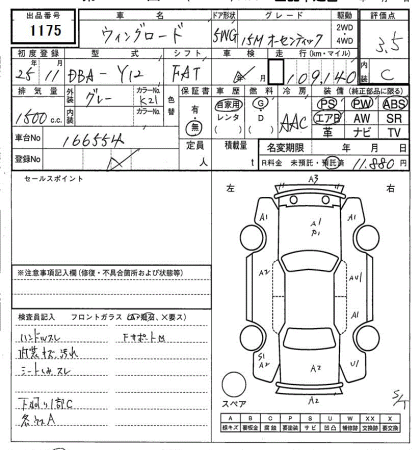 出品番号 車名 ドア形状 グレード 駆動 評価点
1175 ウィングロード 5WG 15M オーセンティック 2WD 4WD 3.5
初度登録 型式 シフト 車検 走行(km・マイル) 内装
25年 11月 DBA-Y12 FAT 109,140 C
排気量 外装 グレー カラーNo. K21 色替 保証書 車歴 燃料 冷房 装備(純正部品に限る)
1500 c.c. 内装 カラーNo. 有・無 自家用 レンタ G D AAC PS PW ABS
エアB AW SR
革 ナビ TV
車台No 166554 定員 人 積載量 t 名変期限 年 月 日
登録No R料金 未預託・預託済 11,880円
セールスポイント 左 右
A3
A1 A1 A1
P1
A2 A1
A2 A1
S1 A2 U1
A2
スペア
※注意事項記入欄(修復・不具合箇所および状態等)
検査員記入 フロントガラス
ハンドルスレ 下サポートM
内装キズ、汚れ
シートしみ、スレ
下廻り1部C
各所A
A B C P S U W XX X
線キズ 要板金 腐蝕 要塗装 サビ 凹凸 補修跡 交換跡 要交換